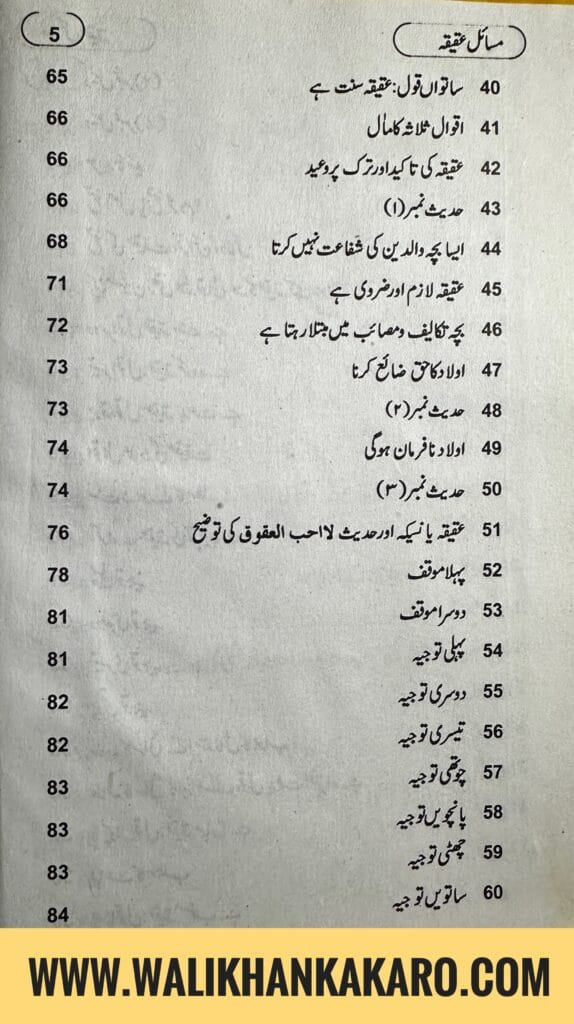 مسائل عقیقہ 5
40 ساتواں قول: عقیقہ سنت ہے 65
41 اقوال ثلاثہ کا مآل 66
42 عقیقہ کی تاکید اور ترک پر وعید 66
43 حدیث نمبر (۱) 66
44 ایسا بچہ والدین کی شفاعت نہیں کرتا 68
45 عقیقہ لازم اور ضروی ہے 71
46 بچہ تکالیف و مصائب میں مبتلا رہتا ہے 72
47 اولاد کا حق ضائع کرنا 73
48 حدیث نمبر (۲) 73
49 اولاد نافرمان ہوگی 74
50 حدیث نمبر (۳) 74
51 عقیقہ یا نسیکہ اور حدیث لا احب العقوق کی توضیح 76
52 پہلا موقف 78
53 دوسرا موقف 81
54 پہلی توجیہ 81
55 دوسری توجیہ 82
56 تیسری توجیہ 82
57 چوتھی توجیہ 83
58 پانچویں توجیہ 83
59 چھٹی توجیہ 83
60 ساتویں توجیہ 84
WWW.WALIKHANKAKARO.COM